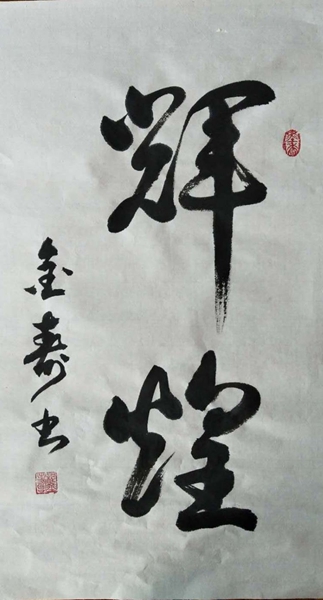 輝煌
金寿书